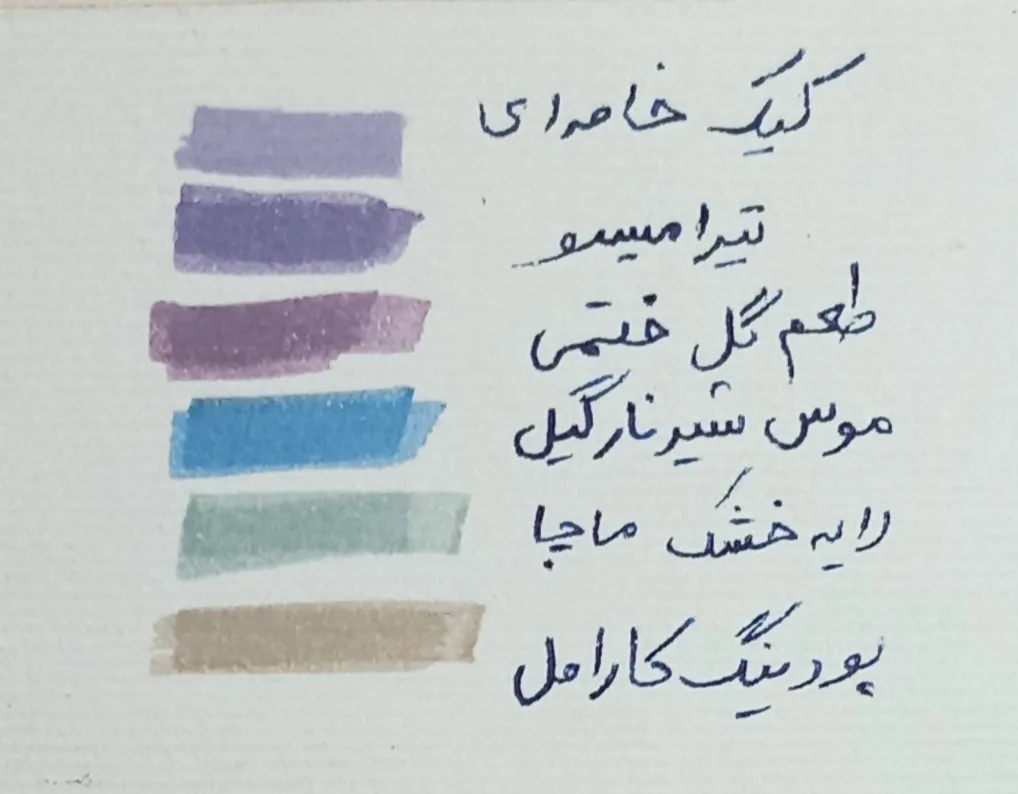 کیک خامه‌ای
تیرامیسو
طعم گل ختمی
موس شیرنارگیل
رایه خشک ماچا
پودینگ کارامل